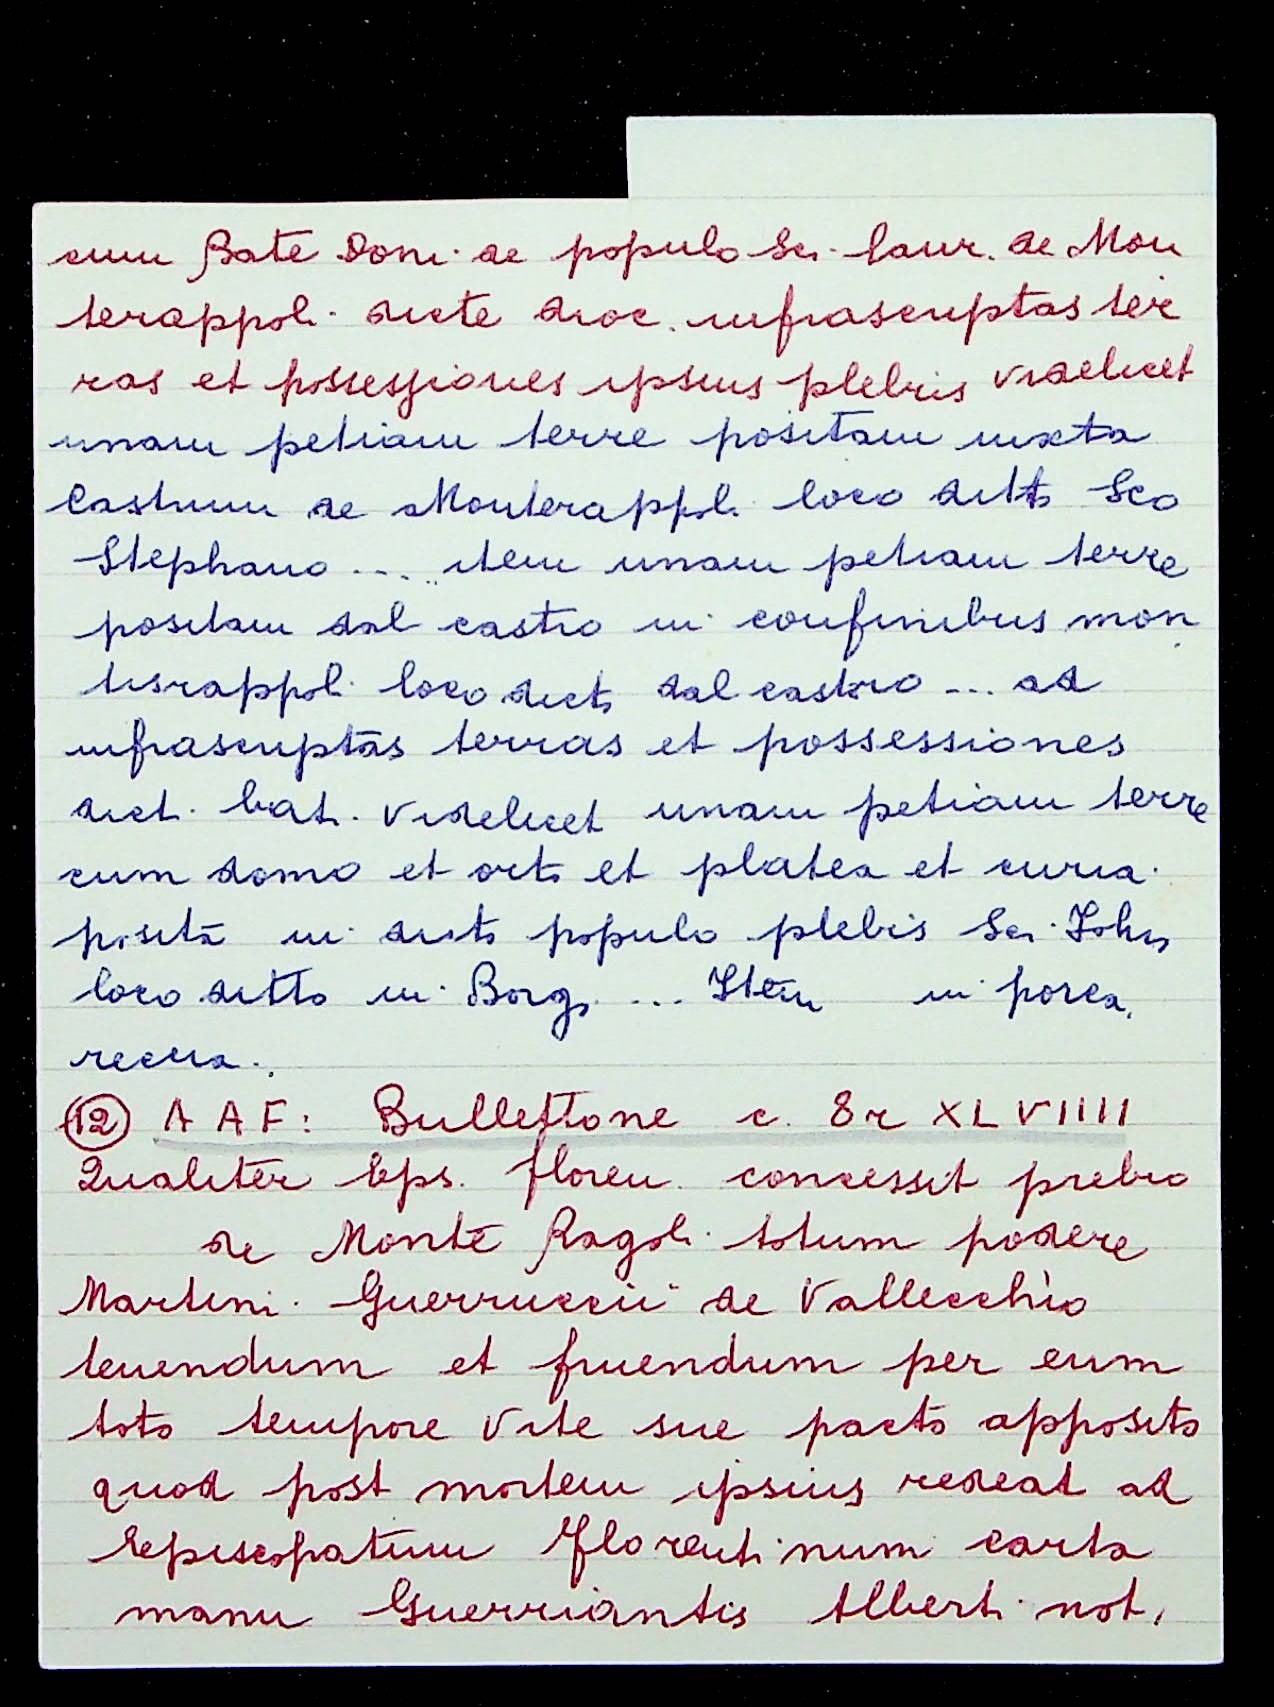 cum Bate Doni de populo Sci. Laur. de Mon
terappoli dicte dioc. infrascriptas ter
ras et possessiones ipsius plebis videlicet
unam petiam terre positam iuxta
Castrum de Monterappoli loco ditto Sco
Stephano .... item unam petiam terre
positam dal castro in confinibus mon
tisrappoli loco dicto dal castro ... ad
infrascriptas terras et possessiones
dict. bat. videlicet unam petiam terre
cum domo et orto et platea et curia
posita in dicto populo plebis Sci. Iohis
loco ditto in Borgo ... Item in porca
reccia.
(12) A A F: Bullettone c. 8r XLVIIII
Qualiter Eps. floren. concessit prebro
de Monte Ragoli totum podere
Martini Guerruccii de Vallecchio
tenendum et fruendum per eum
toto tempore vite sue pacto apposito
quod post mortem ipsius redeat ad
Episcopatum Florentinum carta
manu Guerriantis Alberti not.